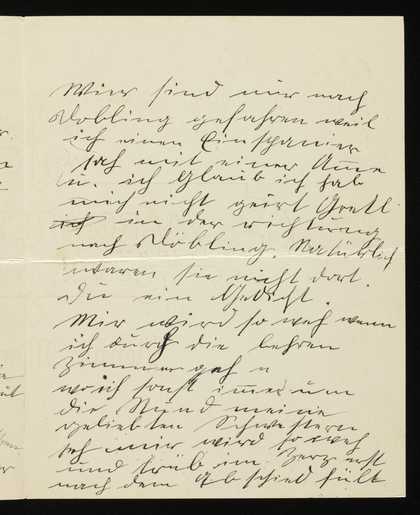 Wier sind nur nach
Dobling gefahren weil
ich einen Einspänier
sah mit einer Amme
u. ich glaub ich hab
mich nicht geirt Gretl
ich in der richtung
nach Döbling. Natürlich
waren sie nicht dort.
Du ein Gedicht.
Mir wird so weh wenn
ich durch die lehren
Zimmer geh
wo ich sonst immer um
die Stund meine
geliebten Schwestern
seh mir wird so weh
und trüb im Herz erst
nach dem Abschied fült